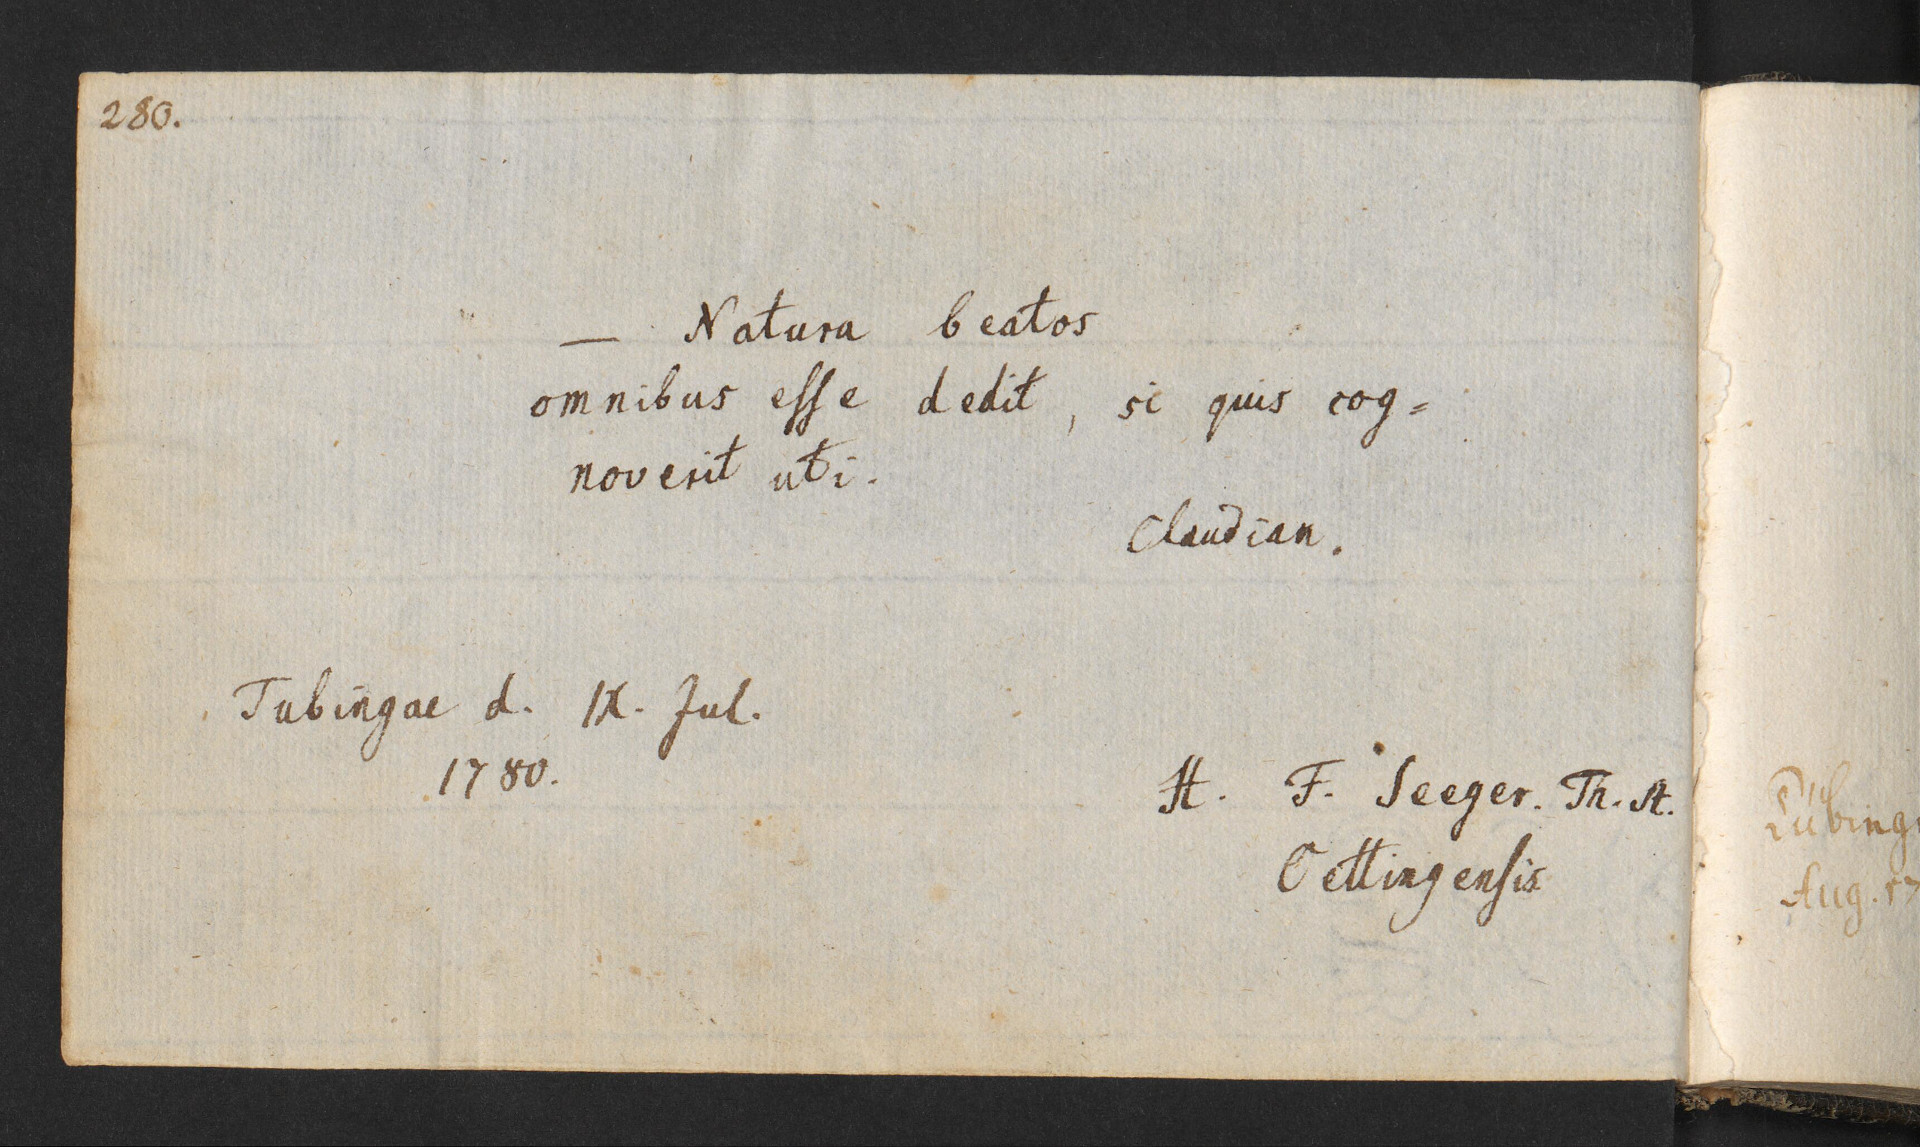 280.
— Natura beatos
omnibus esse dedit, si quis cog=
noverit uti.
Claudian.
Tubingae d. IX. Jul.
1780.
H. F. Seeger. Th. St.
Oettingensis
Tübing
Aug. 17